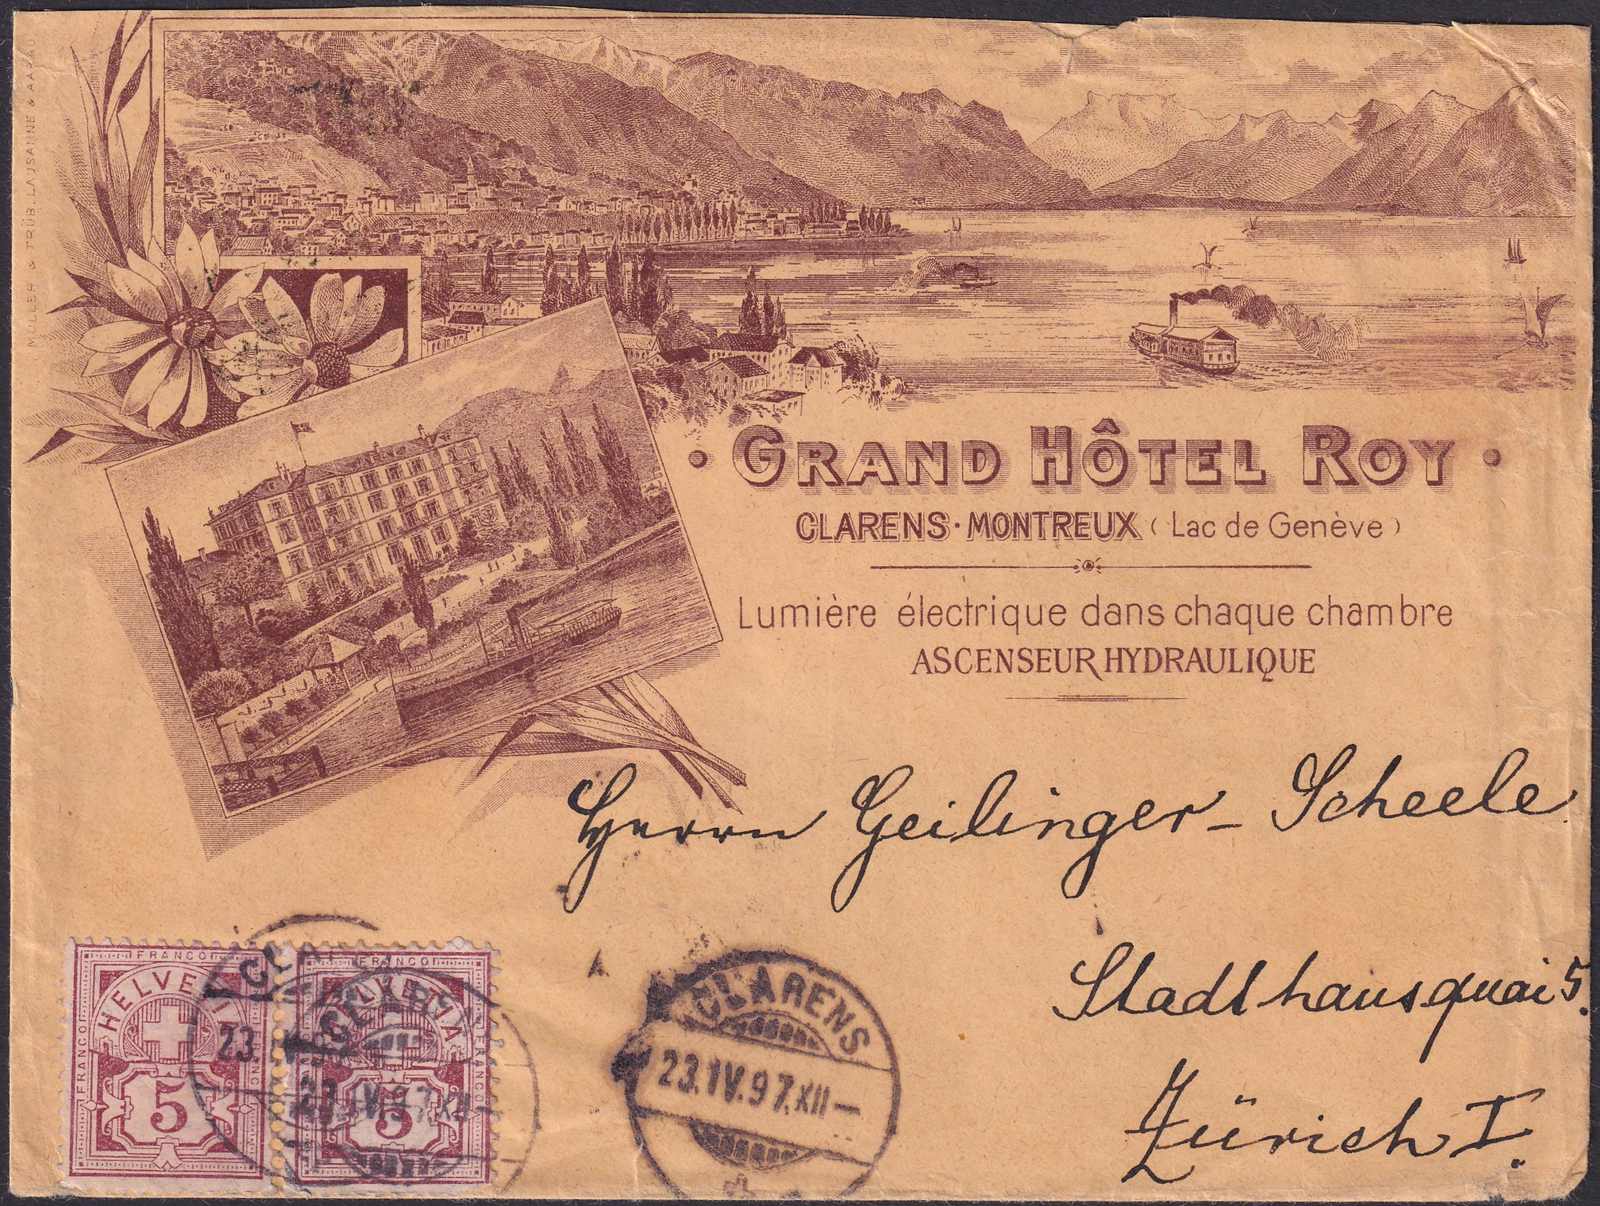 MÜLLER & TRÜB, LAUSANNE & AARAU
• GRAND HÔTEL ROY •
CLARENS · MONTREUX (Lac de Genève)
Lumière électrique dans chaque chambre
ASCENSEUR HYDRAULIQUE
Herrn Geilinger-Scheele
Stadthausquai 5.
Zürich I.
FRANCO
HELVETIA
FRANCO
FRANCO
5
FRANCO
HELVETIA
FRANCO
5
CLARENS
23.IV.97.XII—
CLARENS
23.IV.97.XII—